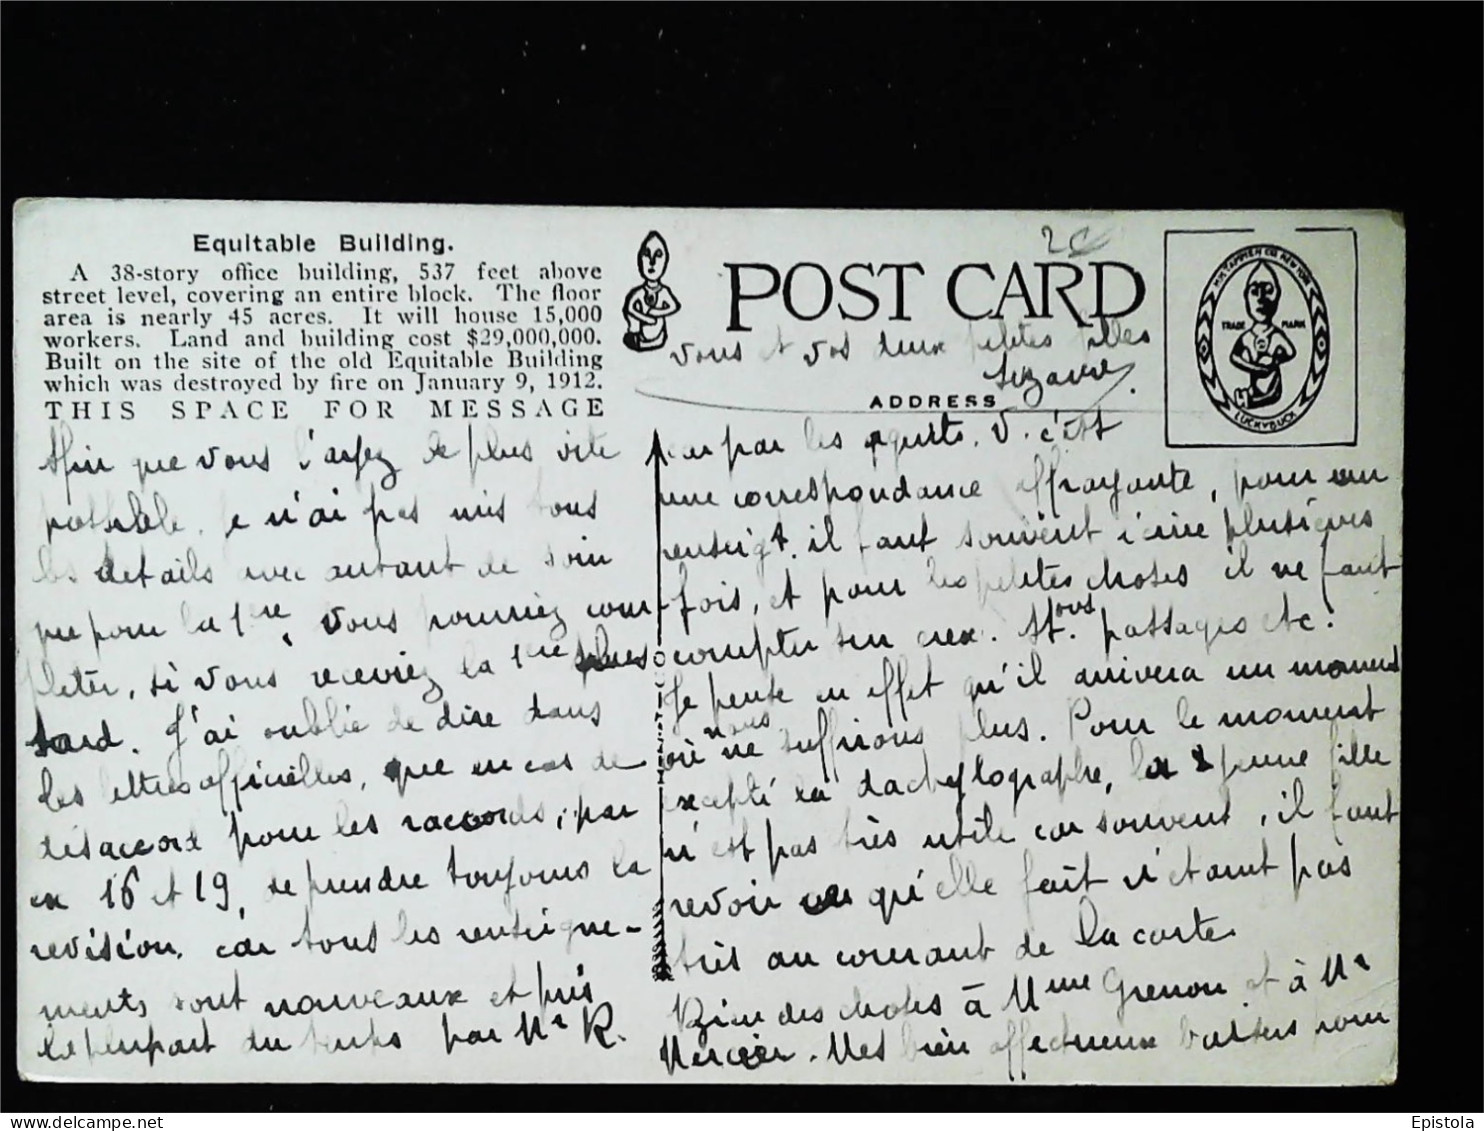 Equitable Building.
A 38-story office building, 537 feet above
street level, covering an entire block. The floor
area is nearly 45 acres. It will house 15,000
workers. Land and building cost $29,000,000.
Built on the site of the old Equitable Building
which was destroyed by fire on January 9, 1912.
THIS SPACE FOR MESSAGE
Afin que vous l'ayez le plus vite
possible, je n'ai pas mis tous
les details avec autant de soin
que pour la 1ère. Vous pourriez com-
pléter, si vous receviez la 1ère plus
tard. J'ai oublié de dire dans
les lettres officielles, que en cas de
désaccord pour les raccords, par
ex 16 et 19, reprendre toujours la
revision, car tous les renseigne-
ments sont nouveaux et pris
la plupart du temps par Mr R.
2c
POST CARD
vous et vos deux petites filles
Suzanne
ADDRESS
H.H. TAMMEN CO NEW YORK
TRADE MARK
LUCKYBUCK
car par les enquêts. V. c'est
une correspondance effrayante, pour un
renseigt. il faut souvent écrire plusieurs
fois, et pour les petites choses il ne faut
compter sur eux. St. ous passages etc.
Je pense en effet qu'il arrivera un moment
où nous ne suffirons plus. Pour le moment
excepté la dactylographe, la jeune fille
n'est pas très utile car souvent, il faut
revoir ce qu'elle fait n'étant pas
très au courant de la carte.
Bien des choses à Mme Grenon et à Mr
Mercier. Mes bien affectueux baisers pour
Epistola
delcampe.net